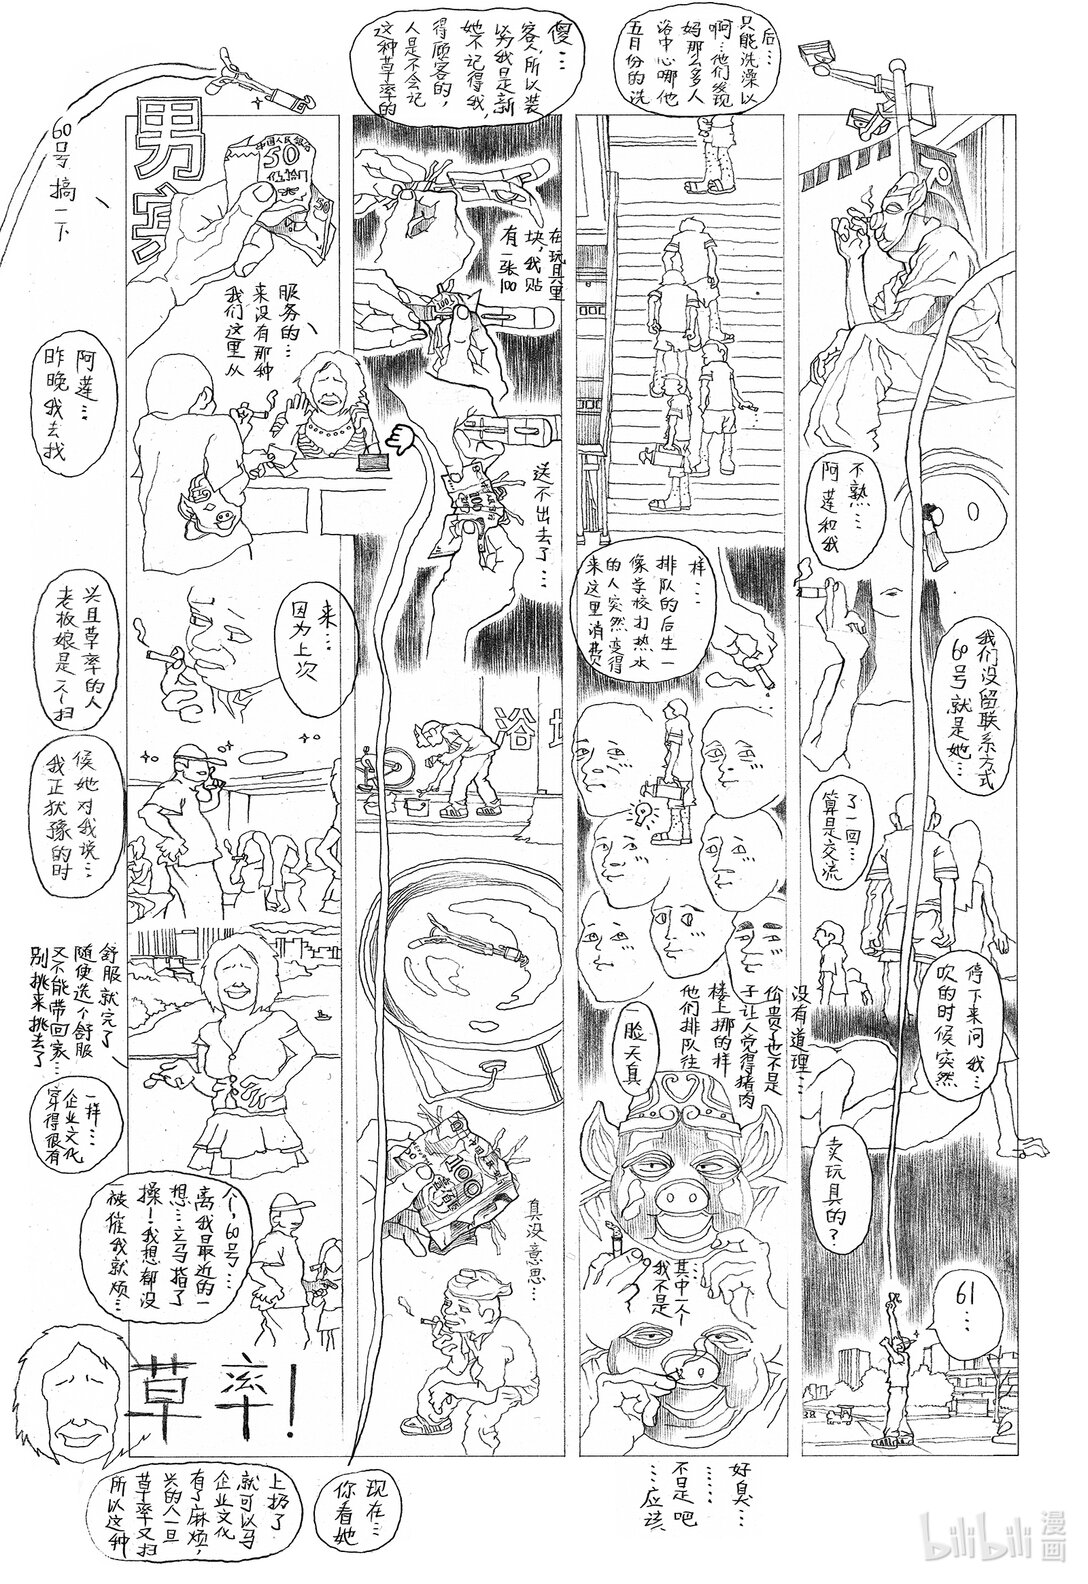 男宾
中国人民银行
50
50
60号搞一下
我们这里从
来没有那种
服务的…
昨晚我去找
阿莲…
因为上次
来…
老板娘是个扫
兴且草率的人
我正犹豫的时
候她对我说…
别挑来挑去了
又不能带回家…
随便选个舒服
舒服就完了
穿得很有
企业文化
一样…
一被催我就烦…
操!我想都没
想…立马指了
离我最近的一
个,60号…
草率!
所以这种
草率又扫
兴的人一旦
有了麻烦,
企业文化
就可以马
上扔了
你看她
现在…
这种草率的
人是不会记
得顾客的,
她不记得我,
穷我是新
客人,所以装
傻…
有一张100
块,我贴
在玩具里
100
100
送不出去了…
浴场
100
真没意思…
五月份的洗
浴中心哪他
妈那么多人
啊…他们发现
只能洗澡以
后…
来这里消费
的人突然变得
像学校打热水
排队的后生一
样…
一脸天真
他们排队往
楼上挪的样
子让人觉得猪肉
价贵了也不是
没有道理…
我不是
其中一个
…
…应该
不是吧
……
好臭…
阿莲和我
不熟…
60号就是她…
我们没留联系方式
算是交流
了一回…
吹的时候突然
停下来问我…
卖玩具的?
61…
bilibili 漫画